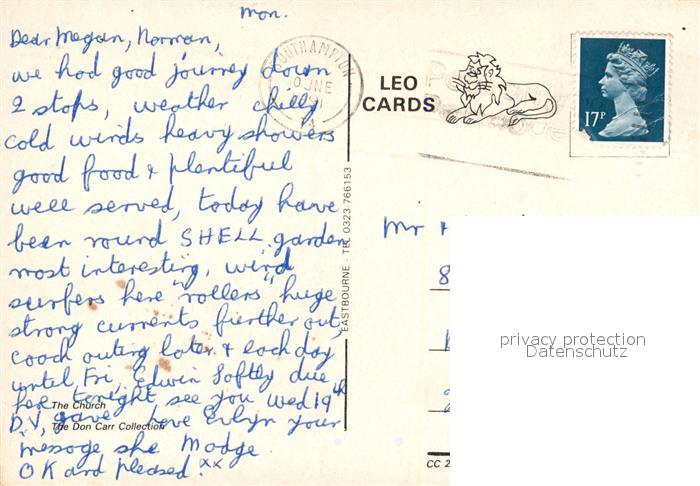 Mon.
Dear Megan, Norman,
we had good journey down
2 stops, weather chilly
cold winds heavy showers
good food & plentiful
well served, today have
been round SHELL garden
most interesting, wind
surfers here "rollers" huge
strong currents further out,
coach outing later & each day
until Fri, Edwin Softly due
here tonight see you wed 19th
D.V, gave love Evlyn your
message she Madge
OK and pleased. xx
The Church
The Don Carr Collection
EASTBOURNE TEL 0323 766153
SOUTHAMPTON
10 JNE
LEO
CARDS
17P
Mr
8
2
CC 2
privacy protection
Datenschutz